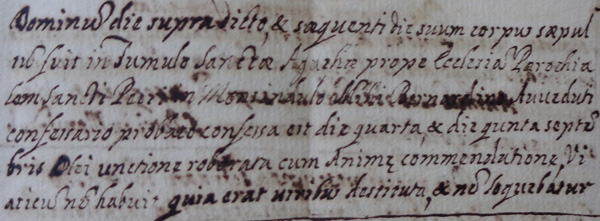 Dominus die supradicto, & sæquenti die suum corpus sæpul
fuit in Tumulo Sanctæ prope Ecclesia Parochia
lem Sancti Petri in Mihi Bernardino Avveduti
confessario probato confessa est die quarta, & die qunta septē
bris Olei unctione roborata cum Animę commendatione, Vi
aticū nō habuit, quia erat viribus destituta, & nō loquebatur